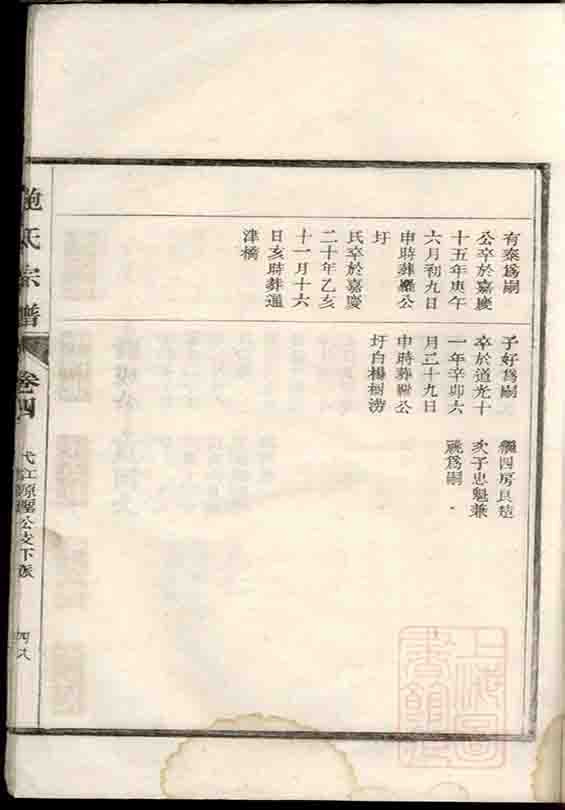 有泰爲嗣
公卒於嘉慶
十五年庚午
六月初九日
申時葬壩公
圩
氏卒於嘉慶
二十年乙亥
十一月十六
日亥時葬通
津橋
子好爲嗣
卒於道光十
一年辛卯六
月二十九日
申時葬壩公
圩白楊樹澇
繼四房良楚
次子忠魁兼
祧爲嗣
氏宗譜
卷四
弋江原公支下派
四八
上海圖書館藏